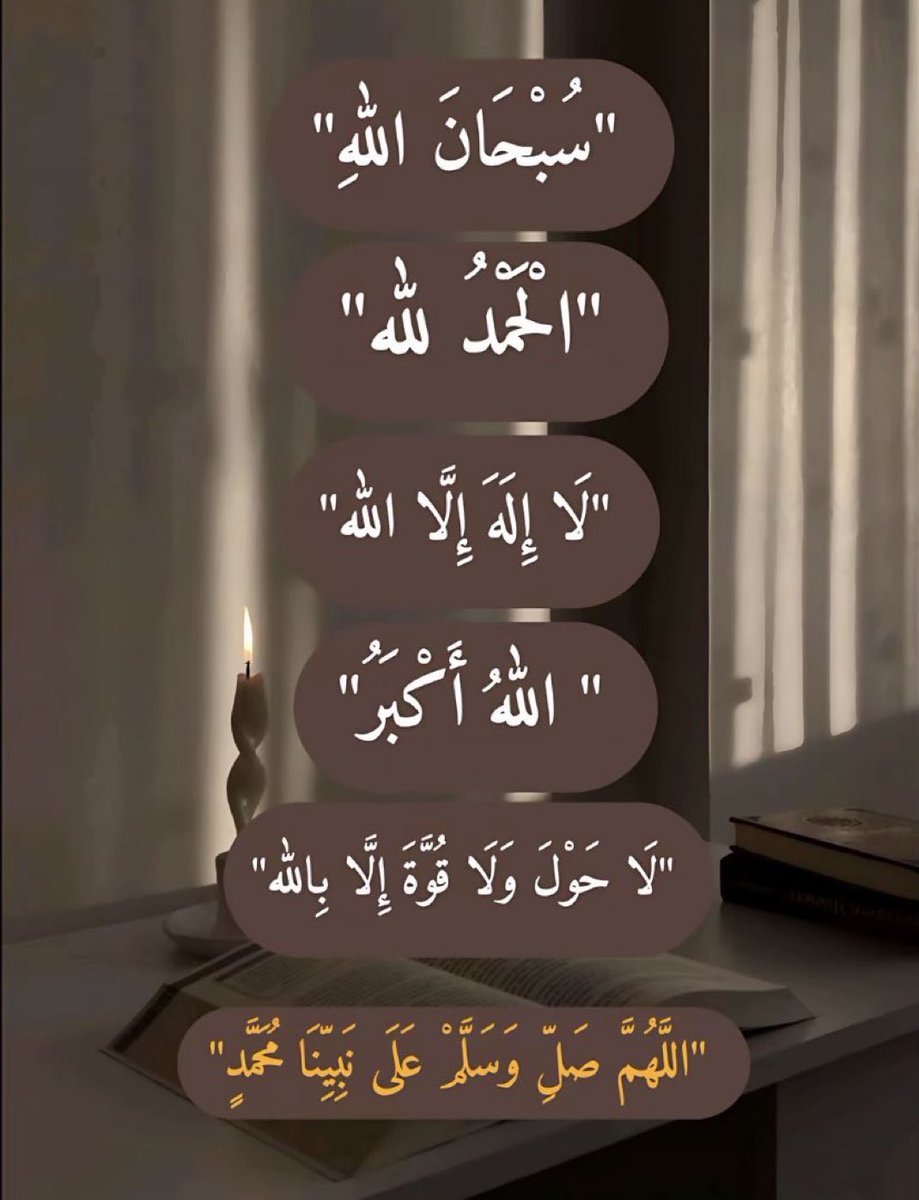 "سُبْحَانَ اللهِ"
"الْحَمْدُ لله"
"لَا إِلَهَ إِلَّا الله"
" اللهُ أَكْبَرُ"
"لَا حَوْلَ وَلَا قُوَّةَ إِلَّا بِالله"
"اللَّهُمَّ صَلِّ وَسَلَّمْ عَلَى نَبِيِّنَا مُحَمَّدٍ"